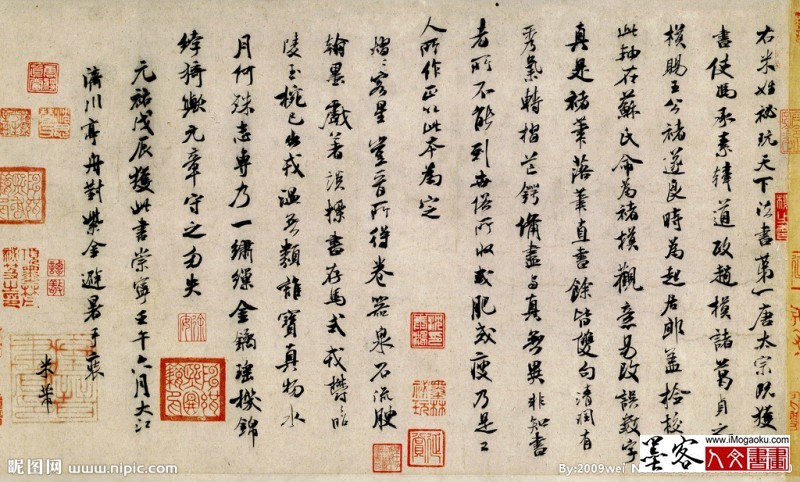 右米姓祕玩天下法書第一唐太宗既獲
書使馮承素韓道政趙模諸葛貞之
模賜王公褚遂良時為起居郎蓋檢校
此軸在蘇氏命為褚模觀意易改誤數字
真是褚筆落筆直書餘皆雙勾清潤有
秀氣轉摺芒鍔備盡與真無異非知書
者所不能到世俗所收或肥或瘦乃是工
人所作正以此本為定
熠〻客星豈晉所得卷器泉石流腴
翰墨戲著談標書存馬式戎鬱〻昭
陵玉椀已出戎溫無類誰寶真物水
月何殊志專乃一繡繅金鐍瑤機錦
綷猗歟元章守之勿失
元祐戊辰獲此書崇寧壬午六月大江
濟川亭舟對紫金避暑手裝
米芾
昵图网 www.nipic.com
By:2009wei
www.iMogaoku.com
墨客
人文書畫